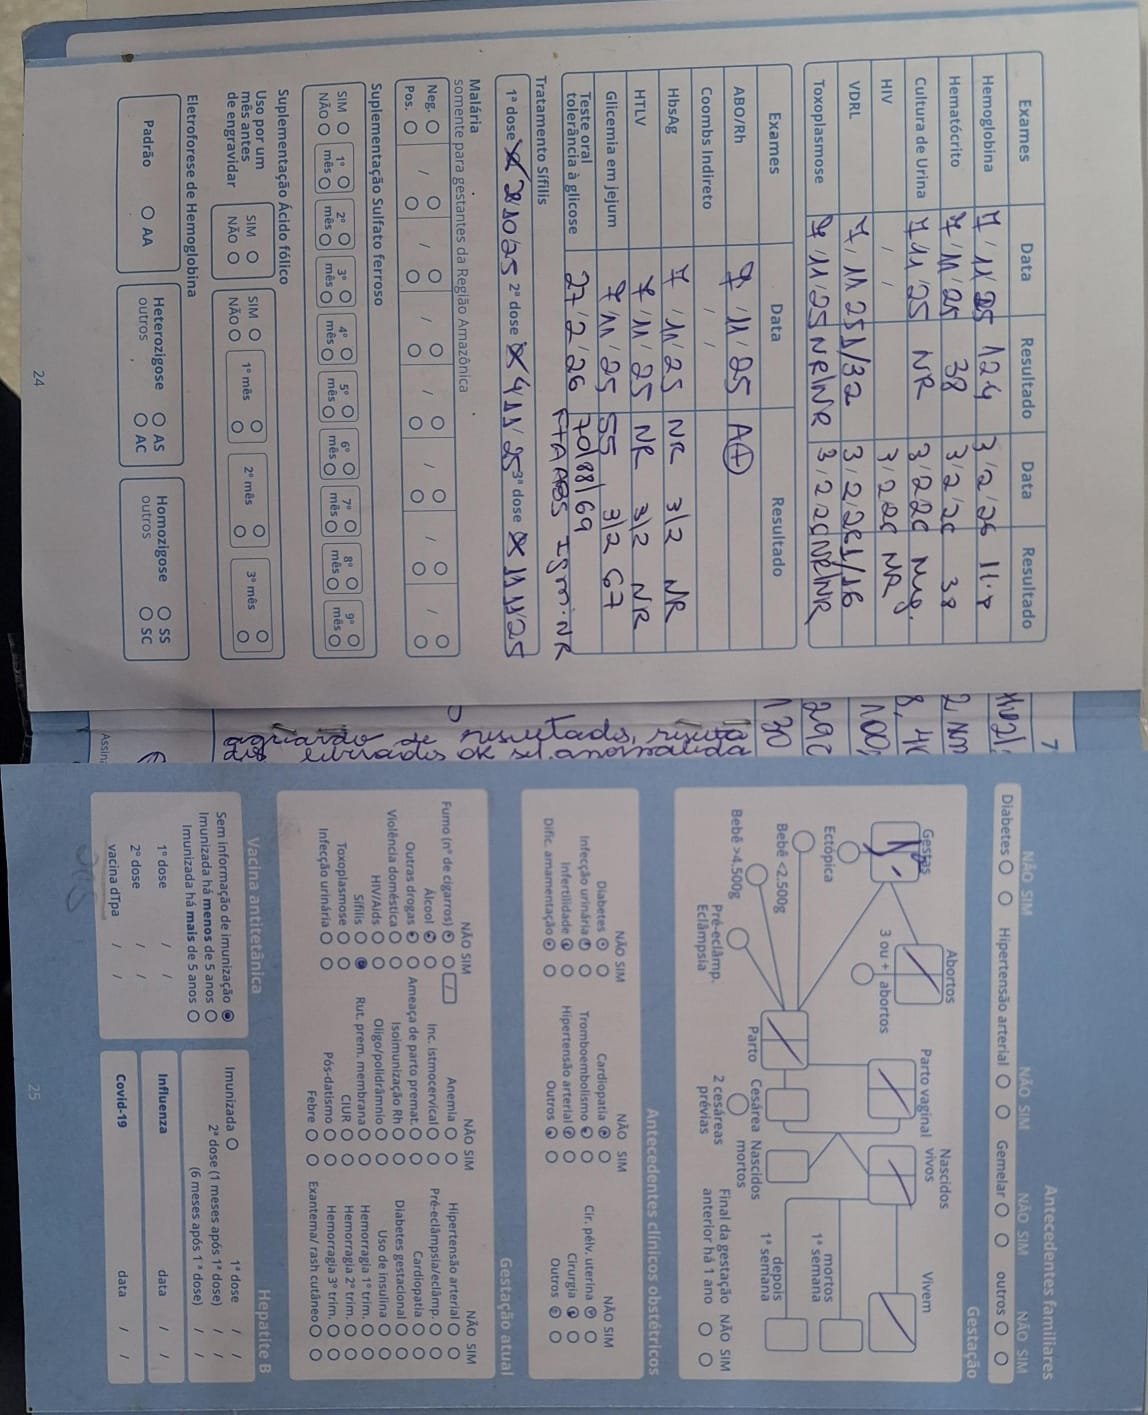 Exames Data Resultado Data Resultado
Hemoglobina 7/11/25 12.4 3/2/26 11.8
Hematócrito 7/11/25 38 3/2/26 38
Cultura de Urina 7/11/25 NR 3/2/26 Neg.
HIV / / 3/2/26 NR
VDRL 7/11/25 1/32 3/2/26 1/16
Toxoplasmose 7/11/25 NR/NR 3/2/26 NR/NR
Exames Data Resultado
ABO/Rh 7/11/25 A+
Coombs Indireto / /
HbsAg 7/11/25 NR 3/2 NR
HTLV 7/11/25 NR 3/2 NR
Glicemia em jejum 7/11/25 55 3/2 67
Teste oral
tolerância à glicose 27/2/26 70/88/69
FTA ABS IgM: NR
Tratamento Sífilis
1ª dose 28/10/25 2ª dose 4/11/25 3ª dose 11/11/25
Malária
somente para gestantes da Região Amazônica
Neg. / / / / / / /
Pos.
Suplementação Sulfato ferroso
SIM
NÃO
1º mês 2º mês 3º mês 4º mês 5º mês 6º mês 7º mês 8º mês 9º mês
Suplementação Ácido fólico
Uso por um
mês antes
de engravidar
SIM
NÃO
SIM
NÃO
1º mês 2º mês 3º mês
Eletroforese de Hemoglobina
Padrão AA
Heterozigose AS
outros AC
Homozigose SS
outros SC
24
7
100,
290
130
aguardo de resultado,
Assin
Antecedentes familiares
NÃO SIM NÃO SIM NÃO SIM NÃO SIM
Diabetes Hipertensão arterial Gemelar outros
Gestação
Gestas
Abortos
Parto vaginal
Nascidos
vivos
Vivem
Ectópica
3 ou + abortos
mortos
1ª semana
Bebê <2.500g
Parto
Cesárea
Nascidos
mortos
depois
1ª semana
Bebê >4.500g
Pré-eclâmp.
Eclâmpsia
2 cesáreas
prévias
Final da gestação NÃO SIM
anterior há 1 ano
Antecedentes clínicos obstétricos
NÃO SIM NÃO SIM NÃO SIM
Diabetes Cardiopatia Cir. pélv. uterina
Infecção urinária Tromboembolismo Cirurgia
Infertilidade Hipertensão arterial Outros
Dific. amamentação Outros
Gestação atual
NÃO SIM NÃO SIM NÃO SIM
Fumo (nº de cigarros) Anemia Hipertensão arterial
Álcool Inc. istmocervical Pré-eclâmpsia/eclâmp.
Outras drogas Ameaça de parto premat. Cardiopatia
Violência doméstica Isoimunização Rh Diabetes gestacional
HIV/Aids Oligo/polidrâmnio Uso de insulina
Sífilis Rut. prem. membrana Hemorragia 1º trim.
Toxoplasmose CIUR Hemorragia 2º trim.
Infecção urinária Pós-datismo Hemorragia 3º trim.
Febre Exantema/ rash cutâneo
Vacina antitetânica
Sem informação de imunização
Imunizada há menos de 5 anos
Imunizada há mais de 5 anos
1ª dose / /
2ª dose / /
vacina dTpa / /
Hepatite B
Imunizada 1ª dose / /
2ª dose (1 meses após 1ª dose) / /
(6 meses após 1ª dose) / /
Influenza data / /
Covid-19 data / /
25